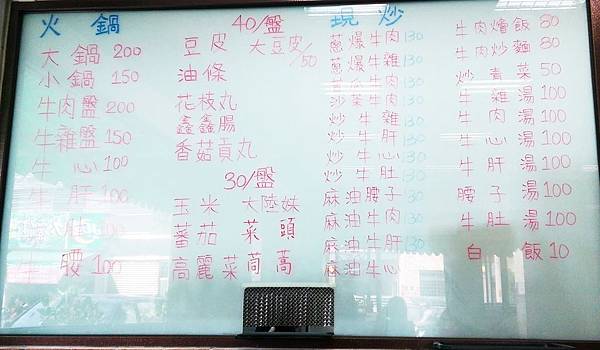 火鍋
大鍋 200
小鍋 150
牛肉盤 200
牛雜盤 150
牛心 100
牛肝 100
牛肚 100
牛腰 100
40/盤
豆皮 大豆皮/50
油條
花枝丸
鑫鑫腸
香菇貢丸
30/盤
玉米 大陸妹
蕃茄 菜頭
高麗菜 茼蒿
現炒
蔥爆牛肉 130
蔥爆牛雜 130
牛肉 130
沙茶牛肉 130
炒牛雜 130
炒牛肝 130
炒牛心 130
炒牛肚 130
麻油腰子 130
麻油牛肉 130
麻油牛肝 130
麻油牛心
牛肉燴飯 80
牛肉炒麵 80
炒青菜 50
牛雜湯 100
牛肉湯 100
牛心湯 100
牛肝湯 100
腰子湯 100
牛肚湯 100
白飯 10